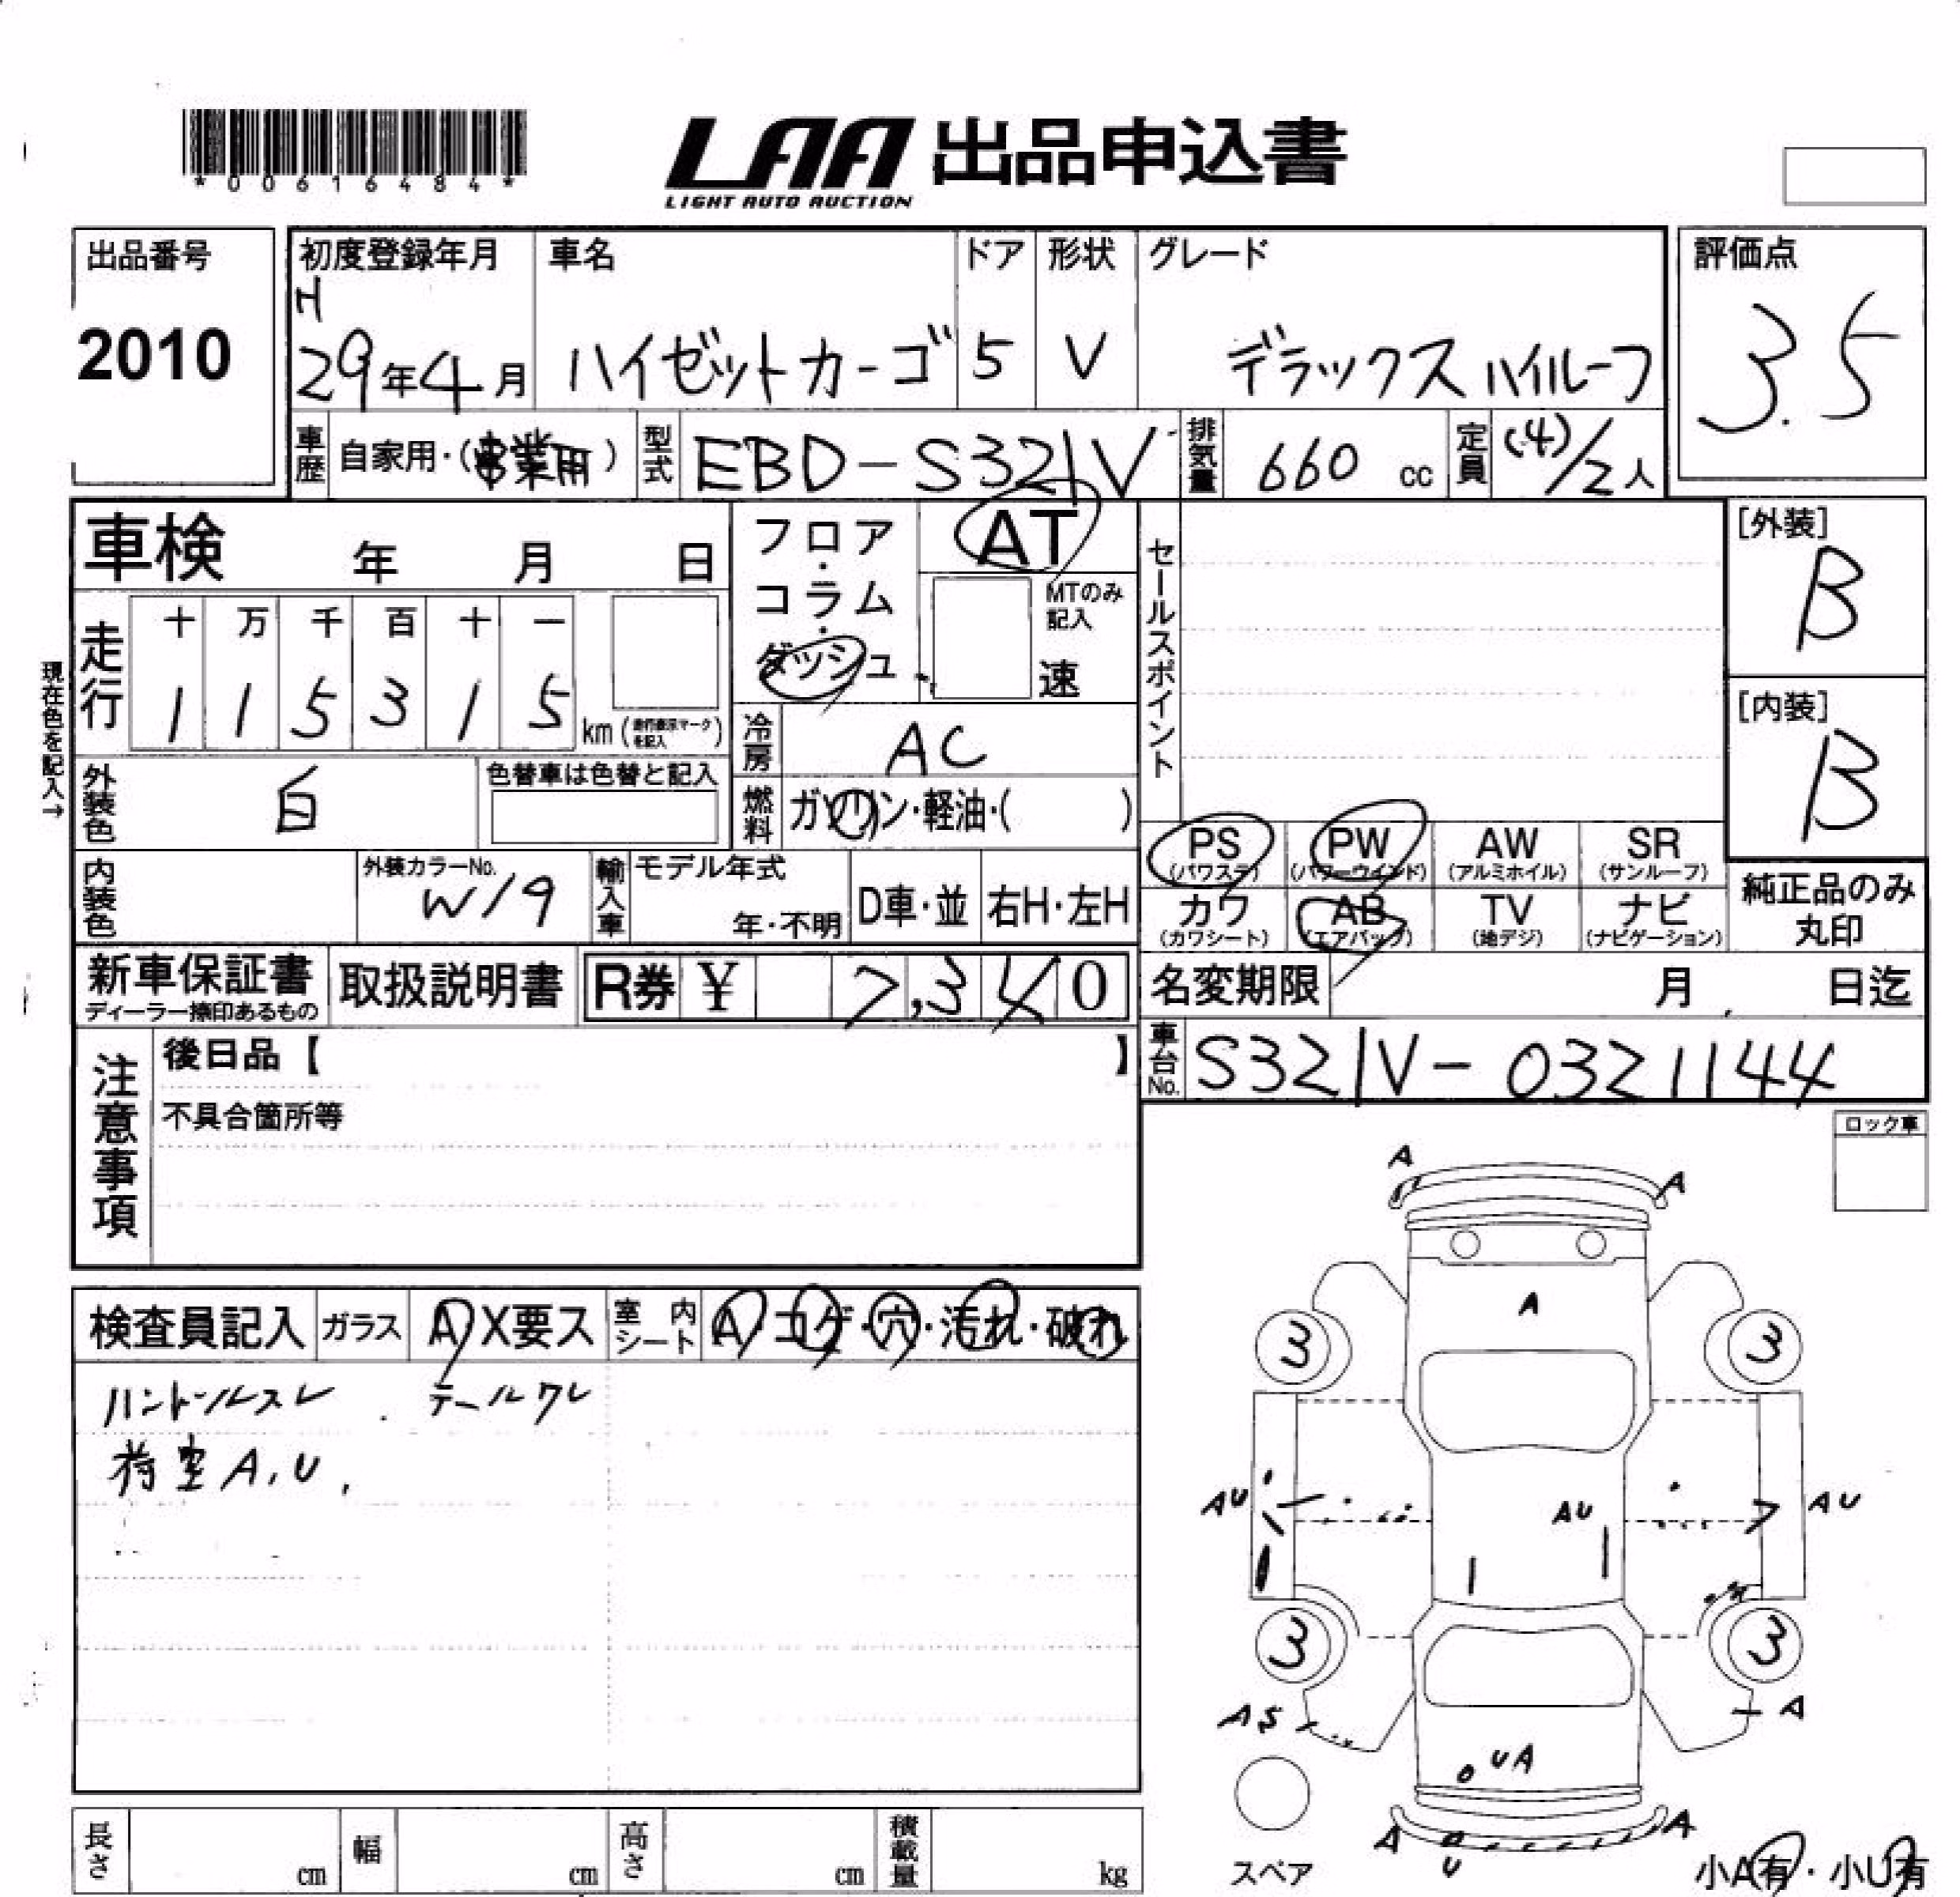 *00616484*
LAA 出品申込書
LIGHT AUTO AUCTION
出品番号
2010
初度登録年月
H
29年4月
車名
ハイゼットカーゴ
ドア
5
形状
V
グレード
デラックスハイルーフ
評価点
3.5
車歴
自家用・(事業用)
型式
EBD-S321V
排気量
660 cc
定員
(4)/2人
車検 年 月 日
フロア・コラム・ダッシュ
AT
MTのみ記入
速
セールスポイント
[外装]
B
[内装]
B
現在色を記入→
走行
十 万 千 百 十 一
1 1 5 3 1 5
km(走行表示マークを記入)
冷房
AC
外装色
白
色替車は色替と記入
燃料
ガソリン・軽油・( )
PS (パワステ)
PW (パワーウインド)
AW (アルミホイル)
SR (サンルーフ)
カワ (カワシート)
AB (エアバッグ)
TV (地デジ)
ナビ (ナビゲーション)
純正品のみ
丸印
内装色
外装カラーNo.
W19
輸入車
モデル年式
年・不明
D車・並
右H・左H
新車保証書
ディーラー捺印あるもの
取扱説明書
R券 ¥ 7,340
名変期限 月 日迄
車台No.
S321V-0321144
注意事項
後日品【 】
不具合箇所等
ロック車
検査員記入
ガラス
A X要ス
室内シート
A・コゲ・穴・汚れ・破れ
ハンドルスレ . テールワレ
荷室A.U.
A
A
A
3
3
AU
AU
AU
3
3
AS
A
UA
A
A
U
スペア
小A有・小U有
長さ cm
幅 cm
高さ cm
積載量 kg